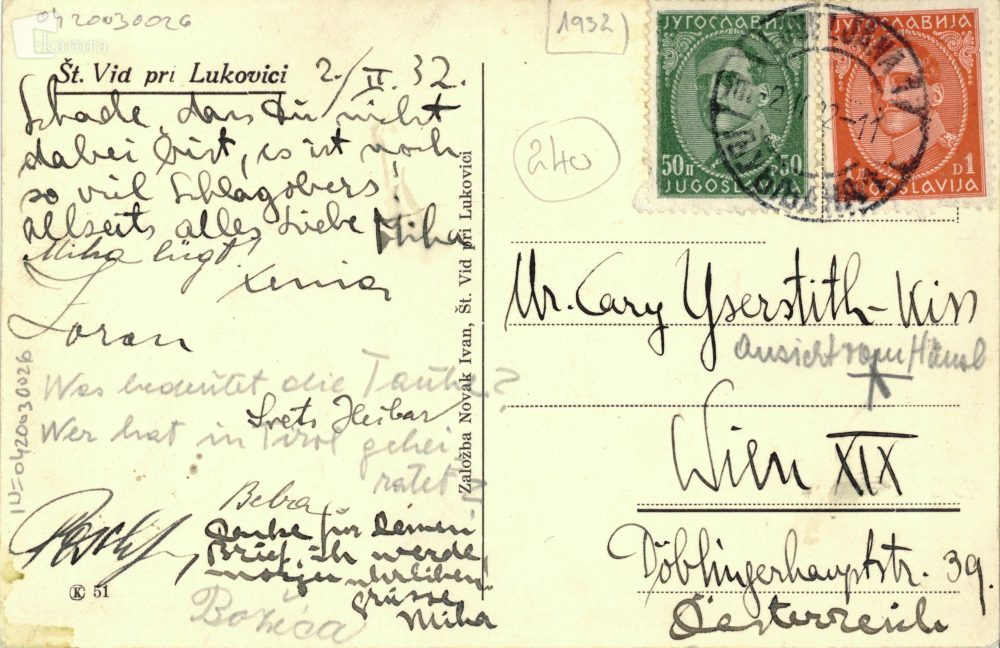 0420030026
kamra
[1932]
Št. Vid pri Lukovici 2./II. 32.
Schade, dass Du nicht
dabei bist, es ist noch
so viel Schlagobers!
Allseits alles Liebe Miha
Miha lügt!
Xenia
Zoran
Was bedeutet die Tante?
Svets Hribar
Wer hat in Tirol gehei
ratet?
Bebra
Danke für Deinen
Brief, ich werde
morgen schreiben!
Grüsse
Miha
Božića
K 51
IN=0420030026
Založba Novak Ivan, Št. Vid pri Lukovici
240
ЈУГОСЛАВИЈА
50П 50
JUGOSLAVIJA
ЈУГОСЛАВИЈА
1Д D1
JUGOSLAVIJA
Mr. Cary Yserstith-Kiss
Ansicht vom Hänsl
Wien XIX
Döblingerhauptstr. 39.
Oesterreich